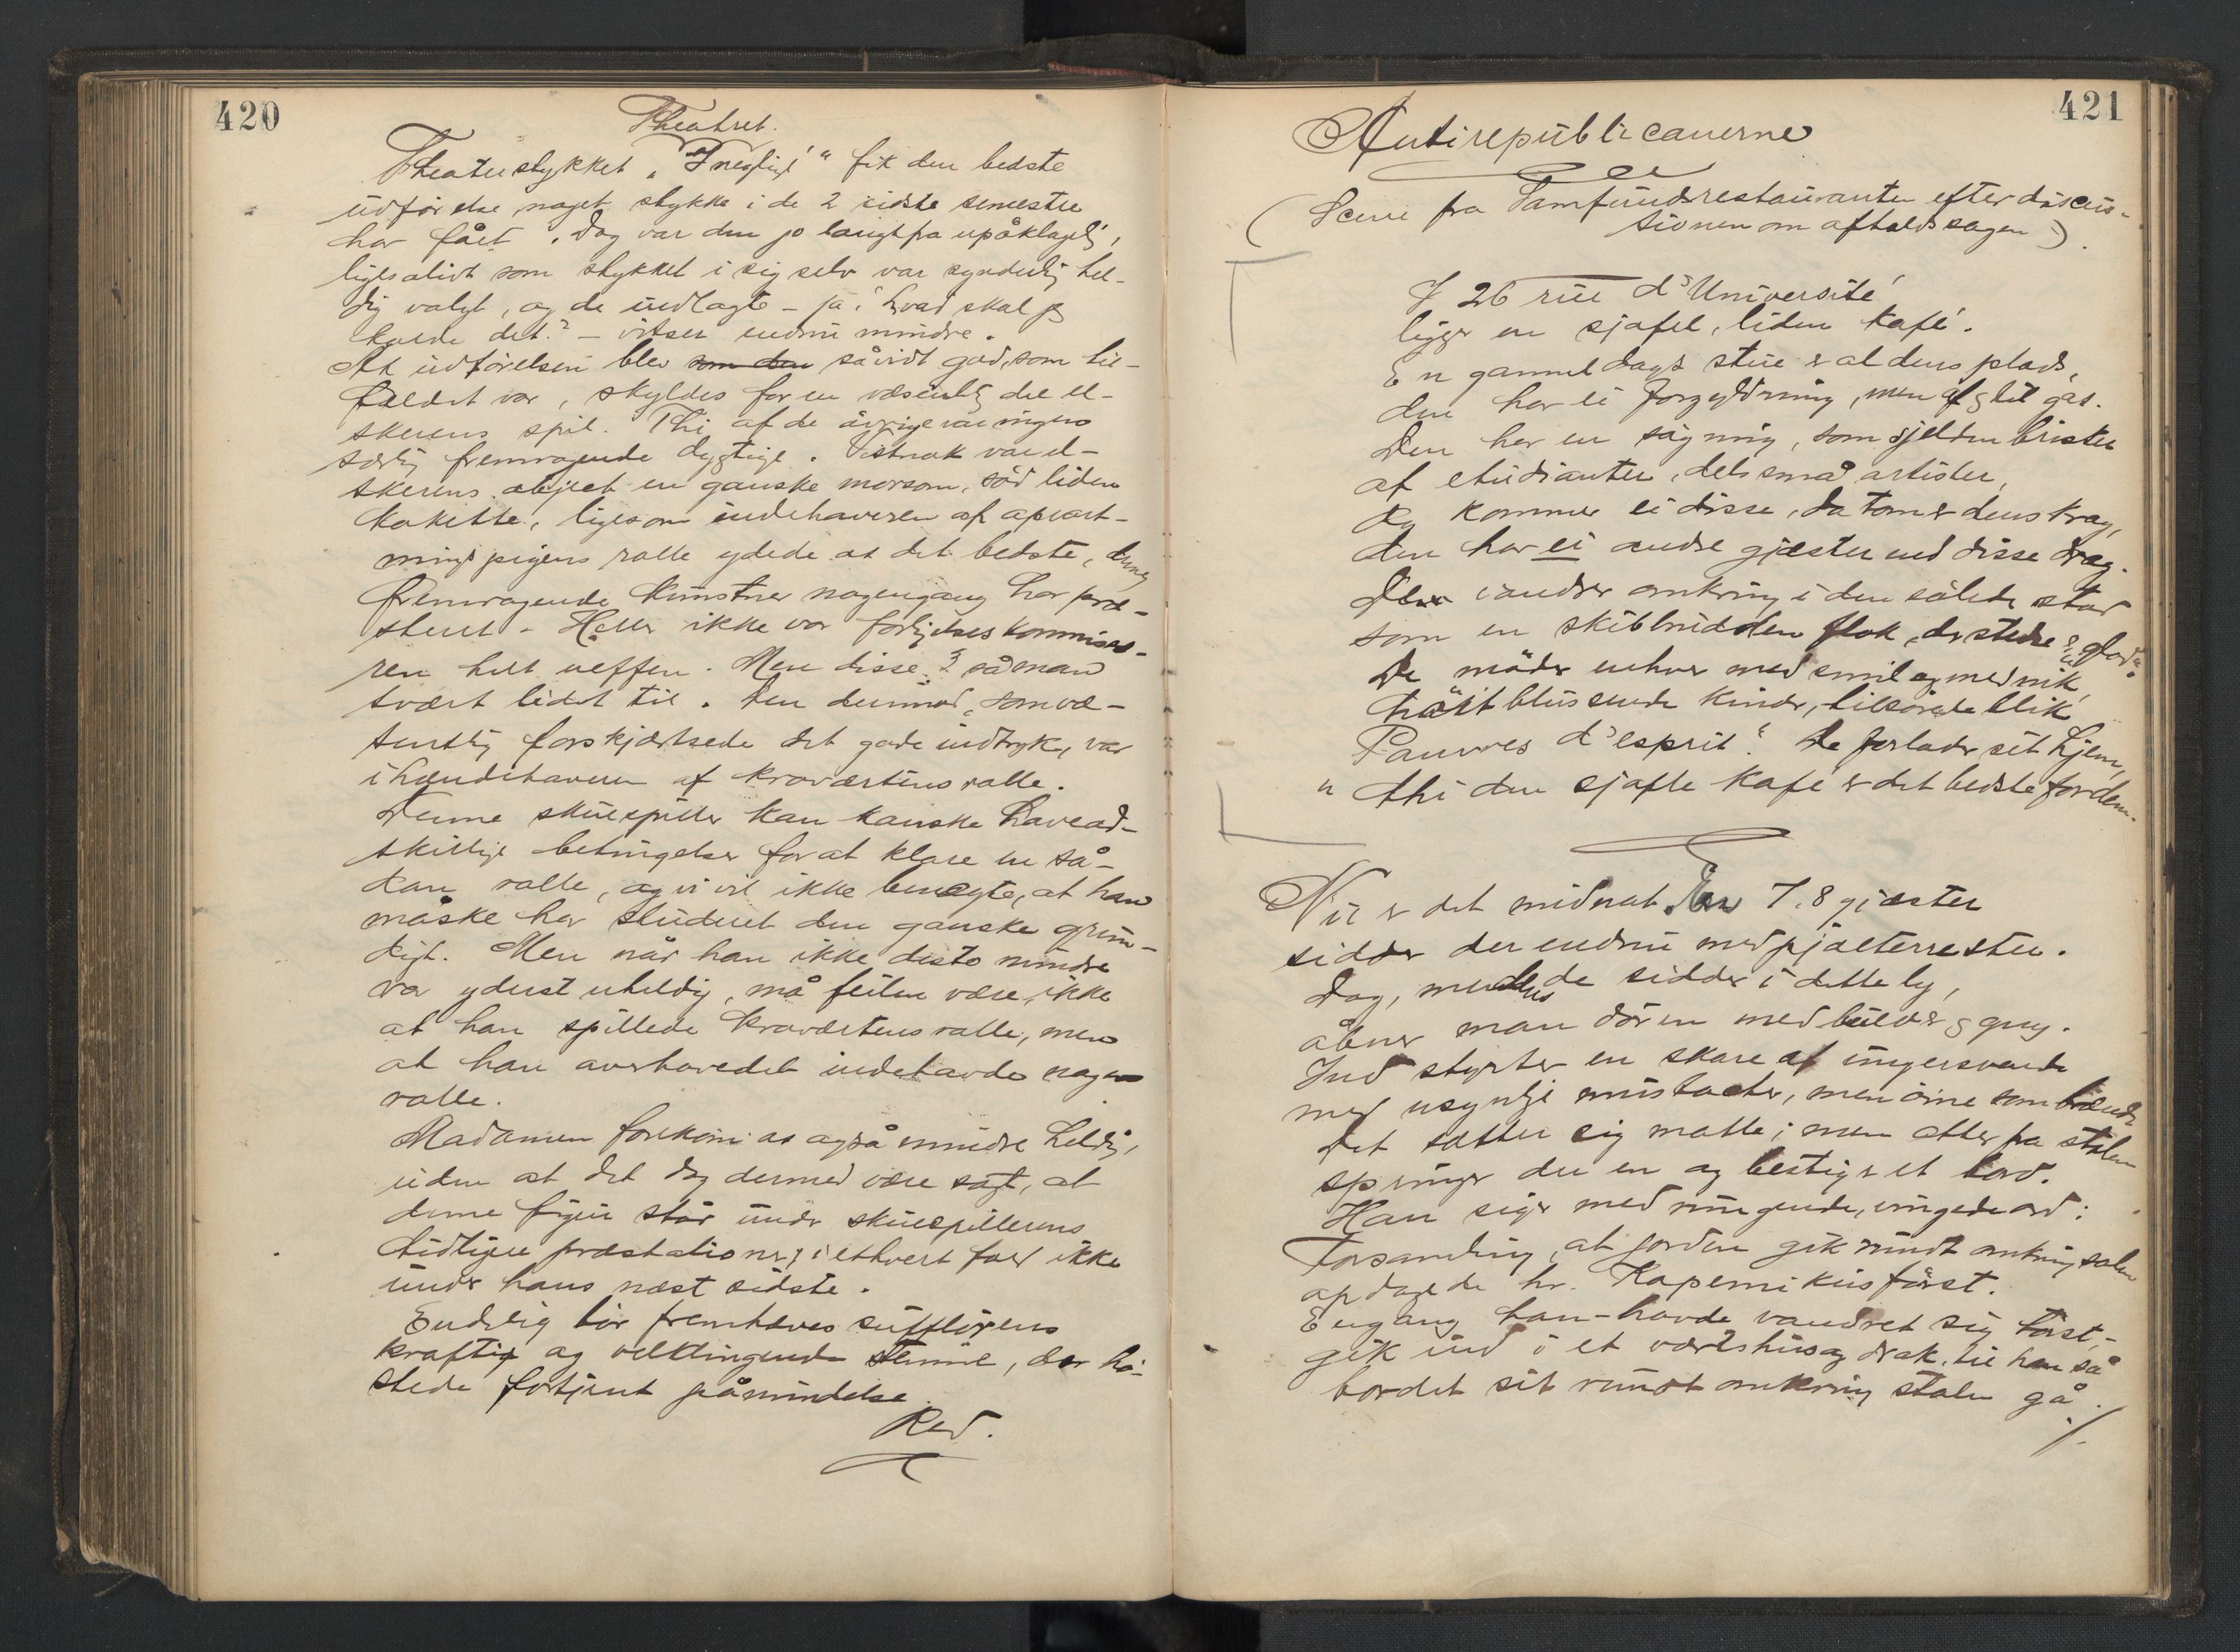 420
Theatret.
Theaterstykket „I negligé“ fik den bedste
udförelse noget stykke i de 2 sidste semestre
har fået. Dog var den jo langtfra upåklagelig,
ligesålidt som stykket i sig selv var synderlig hel-
dig valgt, og de indlagte – ja! hvad skal jeg
kalde det? – vitser endnu mindre.
At udförelsen blev som den såvidt god, som til-
fældet var, skyldes for en væsentlig del el-
skerens spil. Thi af de övrige var ingen
særlig fremragende dygtige. Vistnok var el-
skerens object en ganske morsom, söd liden
kokette, ligesom indehaveren af opvart-
ningspigens rolle ydede os det bedste, denne
fremragende kunstner nogengang har præ-
steret – Heller ikke var forligelseskommissæ-
ren helt ueffen. Men disse 3 så man
svært lidet til. Den derimod, som væ-
sentlig forskjertsede det gode indtryk, var
ihændehaveren af krovertens rolle.
Denne skuespiller kan kanske have ad-
skillige betingelser for at klare en så-
dan rolle, og vi vil ikke benegte, at han
måske har studeret den ganske grun-
digt. Men når han ikke desto mindre
var yderst uheldig, må feilen være, ikke
at han spillede krovertens rolle, men
at han overhovedet indehavde nogen
rolle.
Madamen forekom os også mindre heldig,
uden at det dog dermed være sagt, at
denne figur står under skuespillerens
tidligere præstationer, i ethvert fald ikke
under hans næst sidste.
Endelig bör fremhæves sufflörens
kraftige og velklingende stemme, der hö-
stede fortjent påmindelse.
Red.
421
Antirepublicanerne
(Scene fra Samfundsrestauranten efter discus-
sionen om afholdssagen).
I 26 rue d'Université
ligger en sjofel, liden kafé.
En gammeldags stue er al dens plads,
den har ei forgyldning, men afslit gas.
Den har en søgning, som sjelden brister
af etudianter, dels små artister,
Og kommer ei disse, da tom er dens krog,
den har ei andre gjæster end disse dog.
Der vandrer omkring i den sålede stad
som en skibbruden flok, der stedse er glad.
De möder enhver med smil og med nik,
höit blussende kinder, tilslörede blik
Pauvres d'esprit! De forlader sit hjem,
" thi den sjofle kafe er det bedste for dem.
Nu er det midnat. En 7, 8 gjæster
sidder der endnu med pjolterrester.
Dog, medens de sidder i dette ly,
åbner man dören med bulder og gny.
Ind styrter en skare af ungersvende
med usynlige mustacher, men öine som brænde
Det sætter sig matte; men atter fra stolen
springer der en og bestiger et bord.
Han siger med rungende, vingede ord:
Forsamling, at jorden gik rundt omkring solen
opdagede hr. Kopernikus först.
Engang han havde vandret sig törst,
gik ind i et vertshus og drak, til han så
bordet sit rundt omkring stolen gå.
./.